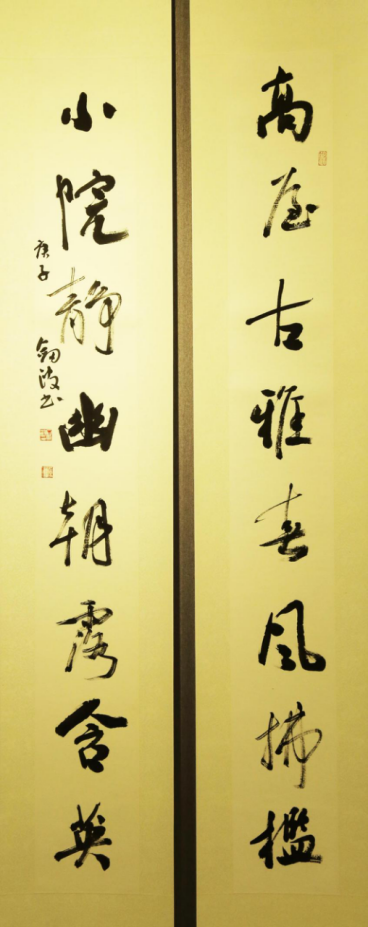 高屋古雅春风拂槛
小院静幽朝露含英
庚子
书